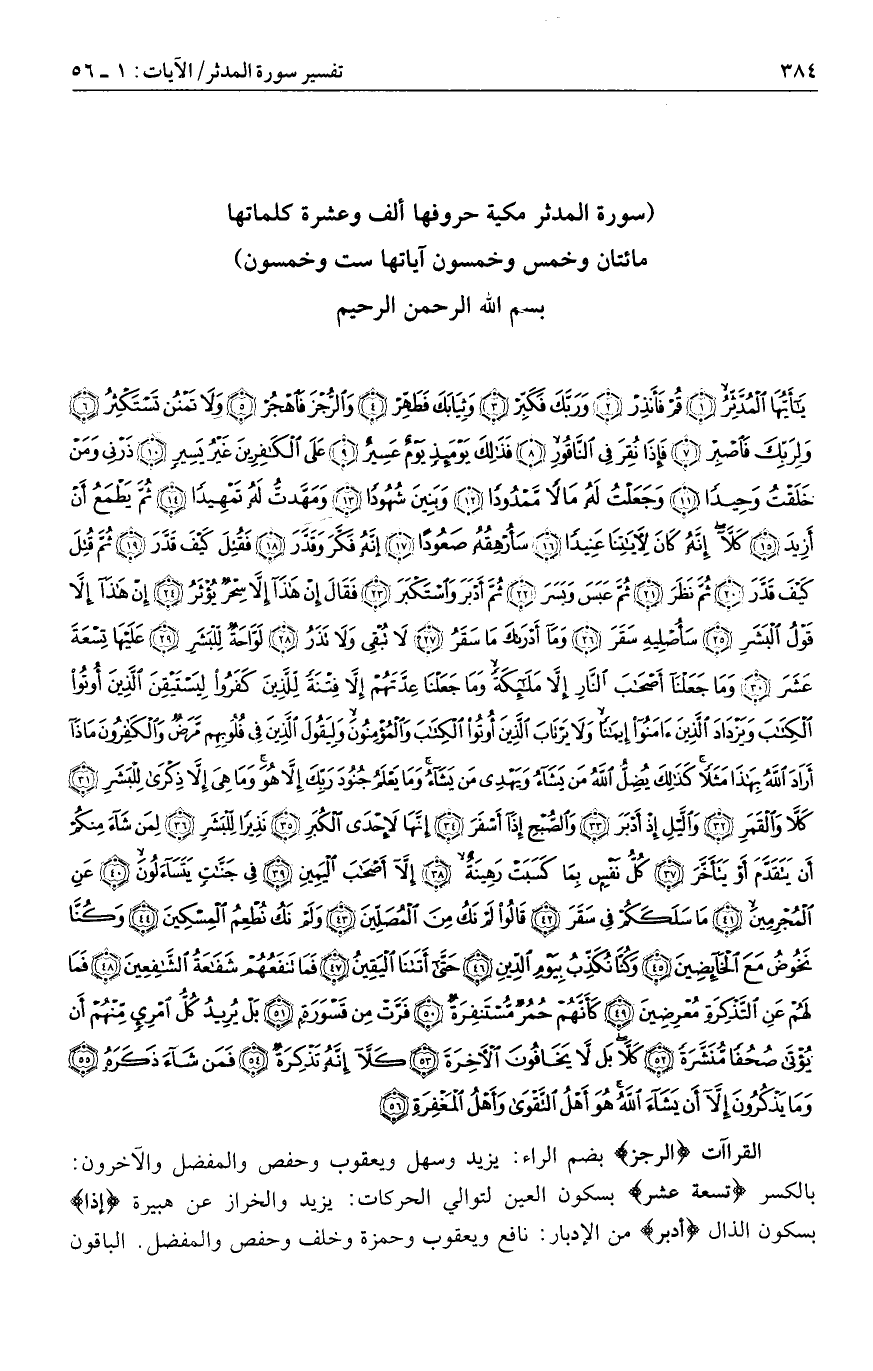 ٣٨٤ تفسير سورة المدثر/ الآيات: ١ ـ ٥٦
(سورة المدثر مكية حروفها ألف وعشرة كلماتها
مائتان وخمس وخمسون آياتها ست وخمسون)
بسم الله الرحمن الرحيم
يَٰٓأَيُّهَا ٱلْمُدَّثِّرُ ﴿١﴾ قُمْ فَأَنذِرْ ﴿٢﴾ وَرَبَّكَ فَكَبِّرْ ﴿٣﴾ وَثِيَابَكَ فَطَهِّرْ ﴿٤﴾ وَٱلرُّجْزَ فَٱهْجُرْ ﴿٥﴾ وَلَا تَمْنُن تَسْتَكْثِرُ ﴿٦﴾
وَلِرَبِّكَ فَٱصْبِرْ ﴿٧﴾ فَإِذَا نُقِرَ فِى ٱلنَّاقُورِ ﴿٨﴾ فَذَٰلِكَ يَوْمَئِذٍ يَوْمٌ عَسِيرٌ ﴿٩﴾ عَلَى ٱلْكَٰفِرِينَ غَيْرُ يَسِيرٍ ﴿١٠﴾ ذَرْنِى وَمَنْ
خَلَقْتُ وَحِيدًا ﴿١١﴾ وَجَعَلْتُ لَهُۥ مَالًا مَّمْدُودًا ﴿١٢﴾ وَبَنِينَ شُهُودًا ﴿١٣﴾ وَمَهَّدتُّ لَهُۥ تَمْهِيدًا ﴿١٤﴾ ثُمَّ يَطْمَعُ أَنْ
أَزِيدَ ﴿١٥﴾ كَلَّآ إِنَّهُۥ كَانَ لِءَايَٰتِنَا عَنِيدًا ﴿١٦﴾ سَأُرْهِقُهُۥ صَعُودًا ﴿١٧﴾ إِنَّهُۥ فَكَّرَ وَقَدَّرَ ﴿١٨﴾ فَقُتِلَ كَيْفَ قَدَّرَ ﴿١٩﴾ ثُمَّ قُتِلَ
كَيْفَ قَدَّرَ ﴿٢٠﴾ ثُمَّ نَظَرَ ﴿٢١﴾ ثُمَّ عَبَسَ وَبَسَرَ ﴿٢٢﴾ ثُمَّ أَدْبَرَ وَٱسْتَكْبَرَ ﴿٢٣﴾ فَقَالَ إِنْ هَٰذَآ إِلَّا سِحْرٌ يُؤْثَرُ ﴿٢٤﴾ إِنْ هَٰذَآ إِلَّا
قَوْلُ ٱلْبَشَرِ ﴿٢٥﴾ سَأُصْلِيهِ سَقَرَ ﴿٢٦﴾ وَمَآ أَدْرَىٰكَ مَا سَقَرُ ﴿٢٧﴾ لَا تُبْقِى وَلَا تَذَرُ ﴿٢٨﴾ لَوَّاحَةٌ لِّلْبَشَرِ ﴿٢٩﴾ عَلَيْهَا تِسْعَةَ
عَشَرَ ﴿٣٠﴾ وَمَا جَعَلْنَآ أَصْحَٰبَ ٱلنَّارِ إِلَّا مَلَٰٓئِكَةً وَمَا جَعَلْنَا عِدَّتَهُمْ إِلَّا فِتْنَةً لِّلَّذِينَ كَفَرُوا۟ لِيَسْتَيْقِنَ ٱلَّذِينَ أُوتُوا۟
ٱلْكِتَٰبَ وَيَزْدَادَ ٱلَّذِينَ ءَامَنُوٓا۟ إِيمَٰنًا وَلَا يَرْتَابَ ٱلَّذِينَ أُوتُوا۟ ٱلْكِتَٰبَ وَٱلْمُؤْمِنُونَ وَلِيَقُولَ ٱلَّذِينَ فِى قُلُوبِهِم مَّرَضٌ وَٱلْكَٰفِرُونَ مَاذَآ
أَرَادَ ٱللَّهُ بِهَٰذَا مَثَلًا كَذَٰلِكَ يُضِلُّ ٱللَّهُ مَن يَشَآءُ وَيَهْدِى مَن يَشَآءُ وَمَا يَعْلَمُ جُنُودَ رَبِّكَ إِلَّا هُوَ وَمَا هِىَ إِلَّا ذِكْرَىٰ لِلْبَشَرِ ﴿٣١﴾
كَلَّا وَٱلْقَمَرِ ﴿٣٢﴾ وَٱلَّيْلِ إِذْ أَدْبَرَ ﴿٣٣﴾ وَٱلصُّبْحِ إِذَآ أَسْفَرَ ﴿٣٤﴾ إِنَّهَا لَإِحْدَى ٱلْكُبَرِ ﴿٣٥﴾ نَذِيرًا لِّلْبَشَرِ ﴿٣٦﴾ لِمَن شَآءَ مِنكُمْ
أَن يَتَقَدَّمَ أَوْ يَتَأَخَّرَ ﴿٣٧﴾ كُلُّ نَفْسٍۭ بِمَا كَسَبَتْ رَهِينَةٌ ﴿٣٨﴾ إِلَّآ أَصْحَٰبَ ٱلْيَمِينِ ﴿٣٩﴾ فِى جَنَّٰتٍ يَتَسَآءَلُونَ ﴿٤٠﴾ عَنِ
ٱلْمُجْرِمِينَ ﴿٤١﴾ مَا سَلَكَكُمْ فِى سَقَرَ ﴿٤٢﴾ قَالُوا۟ لَمْ نَكُ مِنَ ٱلْمُصَلِّينَ ﴿٤٣﴾ وَلَمْ نَكُ نُطْعِمُ ٱلْمِسْكِينَ ﴿٤٤﴾ وَكُنَّا
نَخُوضُ مَعَ ٱلْخَآئِضِينَ ﴿٤٥﴾ وَكُنَّا نُكَذِّبُ بِيَوْمِ ٱلدِّينِ ﴿٤٦﴾ حَتَّىٰٓ أَتَىٰنَا ٱلْيَقِينُ ﴿٤٧﴾ فَمَا تَنفَعُهُمْ شَفَٰعَةُ ٱلشَّٰفِعِينَ ﴿٤٨﴾ فَمَا
لَهُمْ عَنِ ٱلتَّذْكِرَةِ مُعْرِضِينَ ﴿٤٩﴾ كَأَنَّهُمْ حُمُرٌ مُّسْتَنفِرَةٌ ﴿٥٠﴾ فَرَّتْ مِن قَسْوَرَةٍۭ ﴿٥١﴾ بَلْ يُرِيدُ كُلُّ ٱمْرِئٍ مِّنْهُمْ أَن
يُؤْتَىٰ صُحُفًا مُّنَشَّرَةً ﴿٥٢﴾ كَلَّا بَل لَّا يَخَافُونَ ٱلْءَاخِرَةَ ﴿٥٣﴾ كَلَّآ إِنَّهُۥ تَذْكِرَةٌ ﴿٥٤﴾ فَمَن شَآءَ ذَكَرَهُۥ ﴿٥٥﴾
وَمَا يَذْكُرُونَ إِلَّآ أَن يَشَآءَ ٱللَّهُ هُوَ أَهْلُ ٱلتَّقْوَىٰ وَأَهْلُ ٱلْمَغْفِرَةِ ﴿٥٦﴾
القراآت ﴿الرجز﴾ بضم الراء: يزيد وسهل ويعقوب وحفص والمفضل والآخرون:
بالكسر ﴿تسعة عشر﴾ بسكون العين لتوالي الحركات: يزيد والخراز عن هبيرة ﴿إذا﴾
بسكون الذال ﴿أدبر﴾ من الإدبار: نافع ويعقوب وحمزة وخلف وحفص والمفضل. الباقون